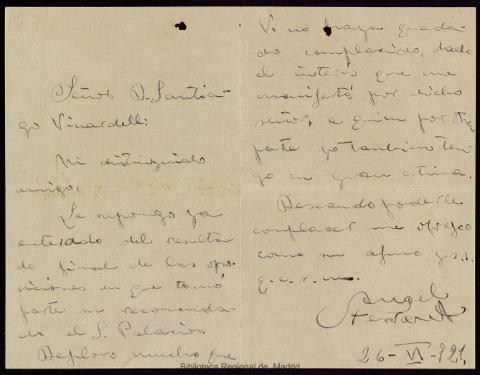 Señor D. Santia-
go Vinardell:
Mi distinguido
amigo:
Le supongo ya
enterado del resulta-
do final de las opo-
siciones en que tomó
parte su recomenda-
do el S. Palacios
Deploro mucho que
V. no haya queda-
do complacido, dado
el interés que me
manifestó por dicho
señor, a quien por otra
parte yo tambien ten-
go en gran estima.
Deseando poderle
complacer me ofrezco
como su afmo y s.s.
q.e.s.m.
Angel
Ferrant
26-VI-921.
Biblioteca Regional de Madrid